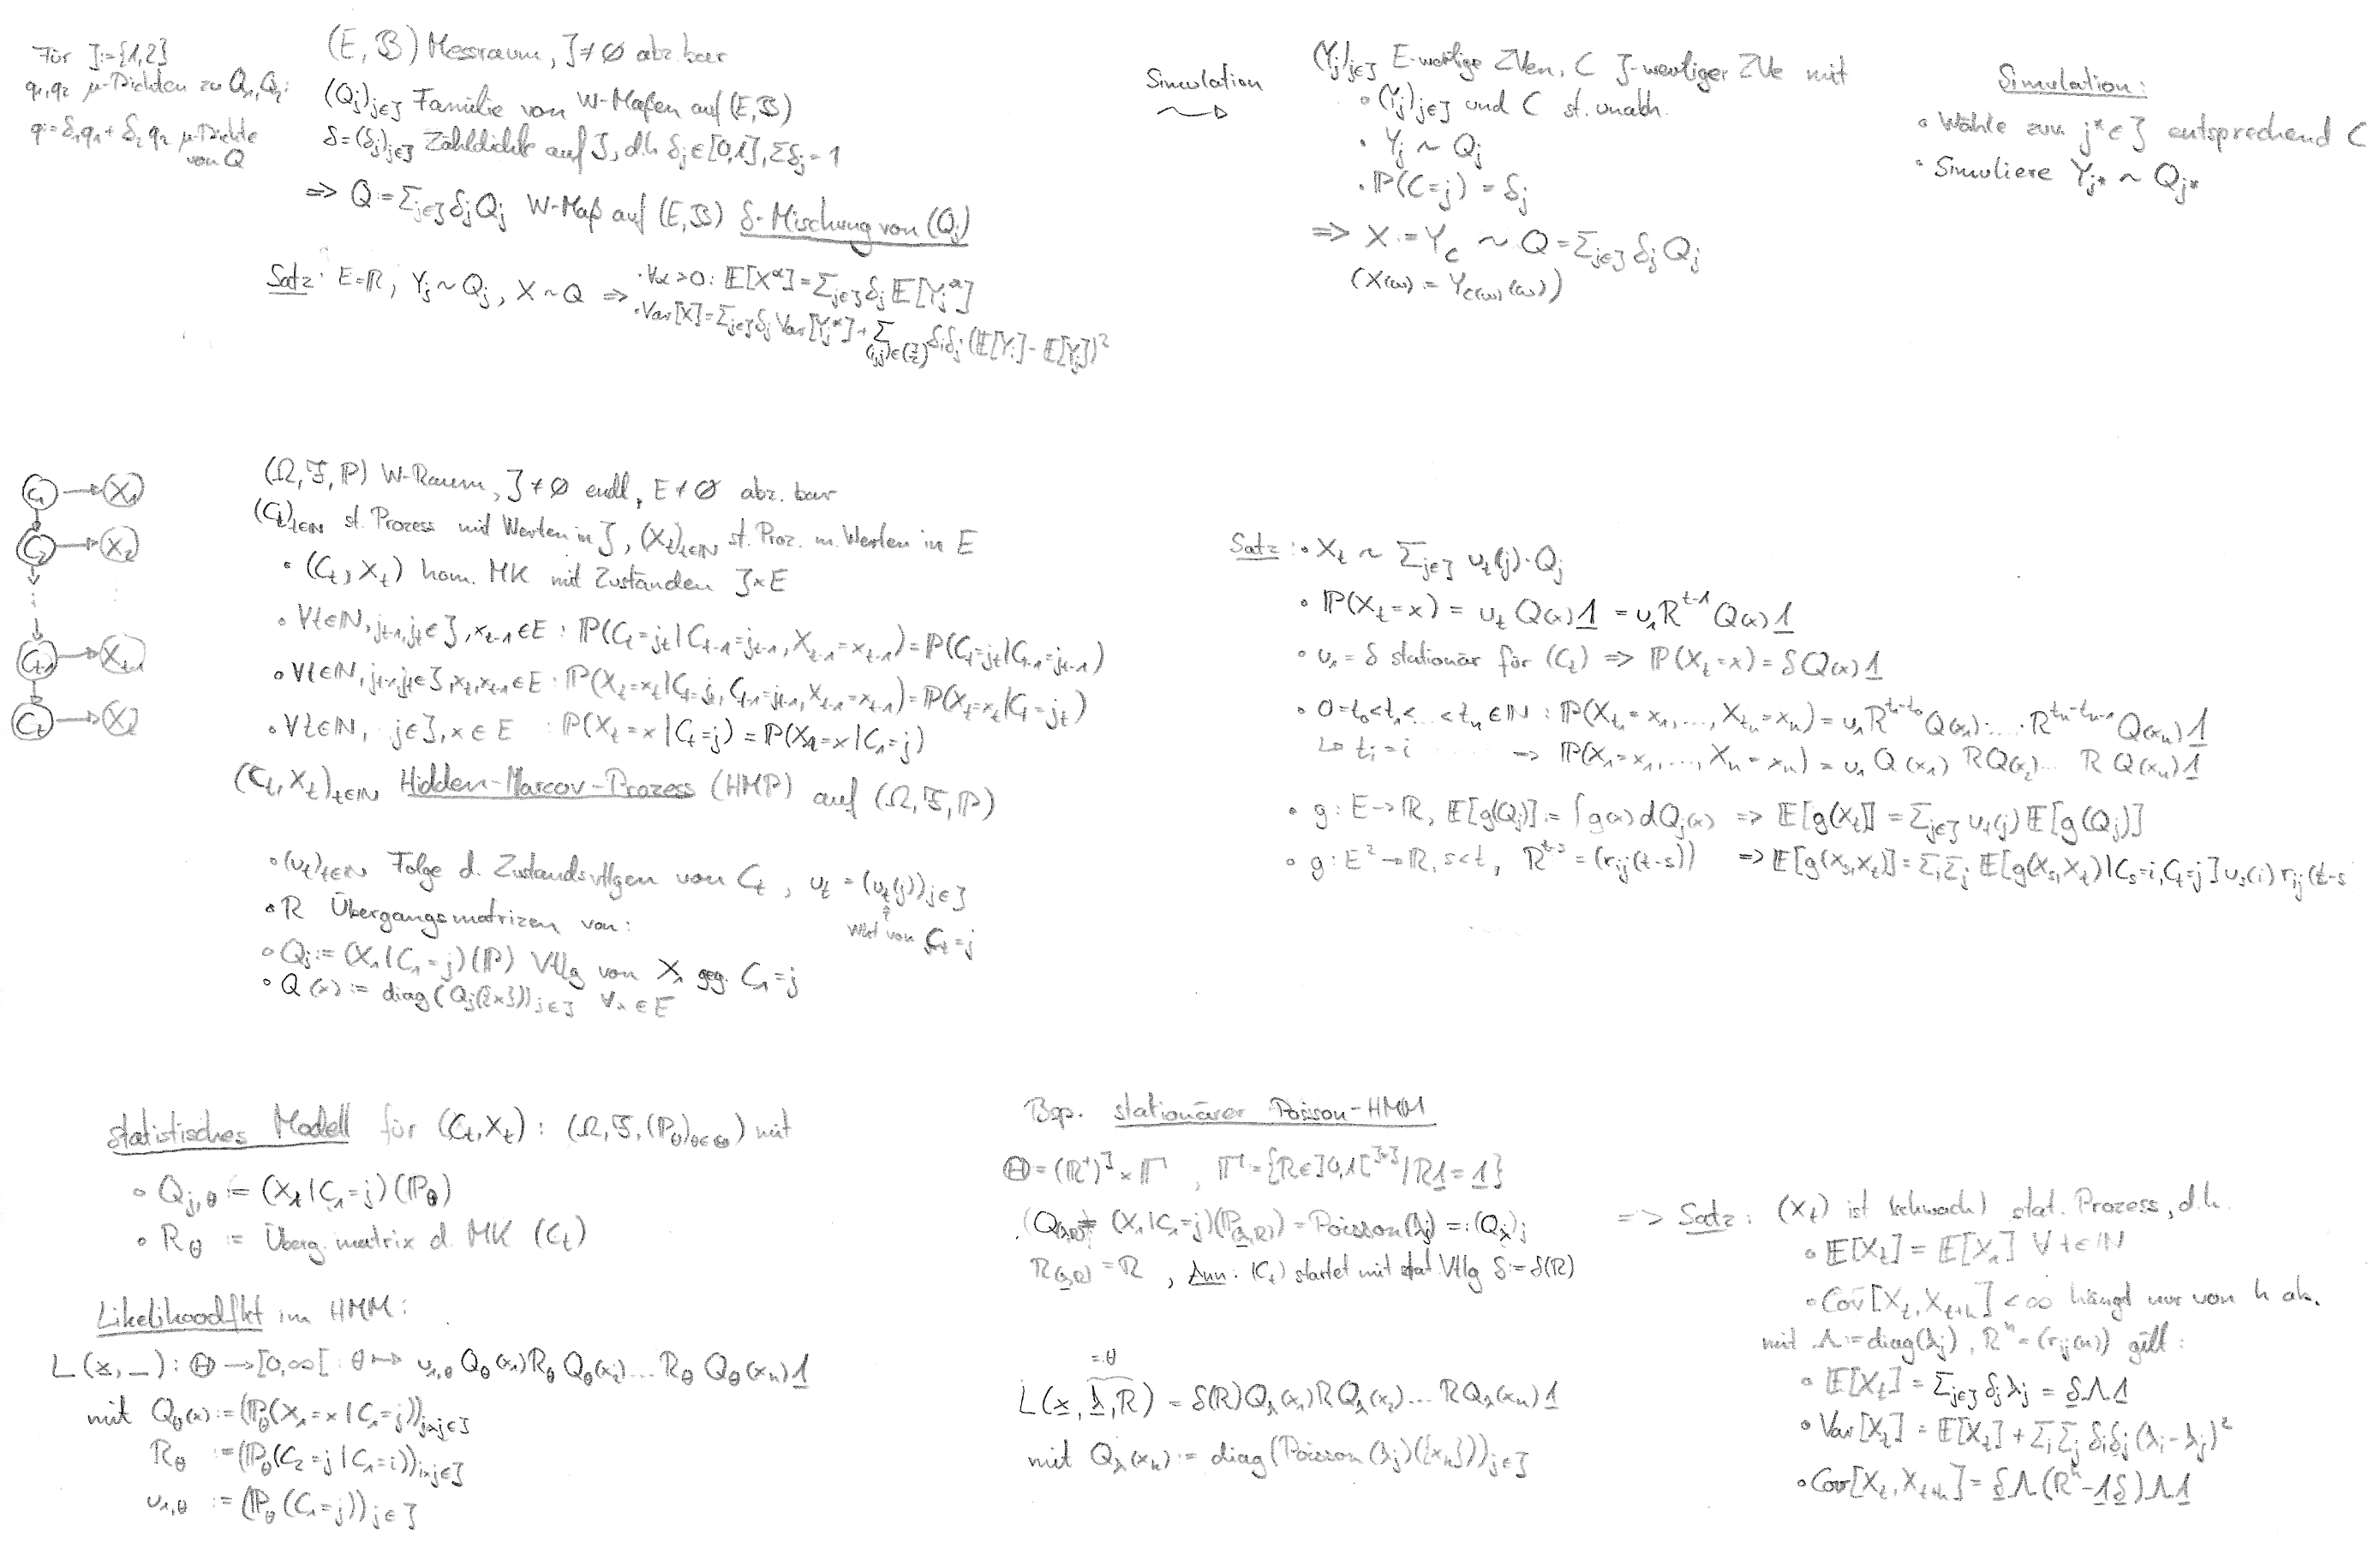 Für J:={1,2}
q₁,q₂ μ-Dichten zu Q₁,Q₂:
q:=δ₁q₁+δ₂q₂ μ-Dichte
von Q
(E,𝔅) Messraum, J≠∅ abz.bar
(Qj)j∈J Familie von W-Maßen auf (E,𝔅)
δ=(δj)j∈J Zähldichte auf J, d.h. δj∈[0,1], Σδj=1
⇒ Q:=Σj∈J δjQj W-Maß auf (E,𝔅) δ-Mischung von (Qj)
Satz: E=ℝ, Yj~Qj, X~Q ⇒ • ∀α>0: 𝔼[X^α]=Σj∈J δj 𝔼[Yj^α]
• Var[X]=Σj∈J δj Var[Yj^α]+Σ(i,j)∈(J 2) δiδj(𝔼[Yi]-𝔼[Yj])²
Simulation
⇝
(Yj)j∈J E-wertige ZVen, C J-wertiger ZVe mit
• (Yj)j∈J und C st. unabh.
• Yj ~ Qj
• ℙ(C=j) = δj
⇒ X:=Y_C ~ Q=Σj∈J δjQj
(X(ω) := Y_C(ω)(ω))
Simulation:
• Wähle zuv. j*∈J entsprechend C
• Simuliere Yj* ~ Qj*
C₁ → X₁
C₂ → X₂
Ct-1 → Xt-1
Ct → Xt
(Ω,𝔉,ℙ) W-Raum, J≠∅ endl, E≠∅ abz.bar
(Ct)t∈ℕ st. Prozess mit Werten in J, (Xt)t∈ℕ st. Proz. m. Werten in E
• (Ct, Xt) hom. MK mit Zuständen J×E
• ∀t∈ℕ, jt-1,jt∈J, xt-1∈E : ℙ(Ct=jt|Ct-1=jt-1, Xt-1=xt-1)=ℙ(Ct=jt|Ct-1=jt-1)
• ∀t∈ℕ, jt-1,jt∈J, xt,xt-1∈E : ℙ(Xt=xt|Ct=jt, Ct-1=jt-1, Xt-1=xt-1)=ℙ(Xt=xt|Ct=jt)
• ∀t∈ℕ, j∈J, x∈E : ℙ(Xt=x|Ct=j) = ℙ(X₁=x|C₁=j)
(Ct, Xt)t∈ℕ Hidden-Marcov-Prozess (HMP) auf (Ω,𝔉,ℙ)
• (ut)t∈ℕ Folge d. Zustandsvtlgen von Ct, ut = (ut(j))j∈J
↑
Wkt von Ct=j
• R Übergangsmatrizen von:
• Qj := (X₁|C₁=j)(ℙ) Vtlg von X₁ geg. C₁=j
• Q(x) := diag(Qj({x}))j∈J ∀x∈E
Satz: • Xt ~ Σj∈J ut(j)·Qj
• ℙ(Xt=x) = ut Q(x)1 = u₁R^(t-1) Q(x)1
• u₁=δ stationär für (Ct) ⇒ ℙ(Xt=x)=δQ(x)1
• 0=t₀<t₁<...<tn∈ℕ : ℙ(Xt₁=x₁,...,Xtn=xn)=u₁R^(t₁-t₀)Q(x₁)·...·R^(tn-tn-1)Q(xn)1
↳ ti=i → ℙ(X₁=x₁,...,Xn=xn)=u₁Q(x₁)RQ(x₂)...RQ(xn)1
• g:E→ℝ, 𝔼[g(Qj)]:=∫g(x)dQj(x) ⇒ 𝔼[g(Xt)]=Σj∈J ut(j)𝔼[g(Qj)]
• g:E²→ℝ, s<t, R^(t-s)=(rij(t-s)) ⇒ 𝔼[g(Xs,Xt)]=ΣiΣj 𝔼[g(Xs,Xt)|Cs=i,Ct=j]us(i)rij(t-s
statistisches Modell für (Ct,Xt): (Ω,𝔉,(ℙθ)θ∈Θ) mit
• Qj,θ := (X₁|C₁=j)(ℙθ)
• Rθ := Überg.matrix d. MK (Ct)
Likelihoodfkt im HMM:
L(x,_): Θ→[0,∞[ : θ↦ u₁,θ Qθ(x₁)RθQθ(x₂)...RθQθ(xn)1
mit Qθ(x):=(ℙθ(X₁=x|C₁=j))j×j∈J
Rθ :=(ℙθ(C₂=j|C₁=i))i×j∈J
u₁,θ :=(ℙθ(C₁=j))j∈J
Bsp. stationärer Poisson-HMM
Θ=(ℝ⁺)^J×Γ, Γ:={R∈]0,1[^(J×J)/R1=1}
(Q(λ,R))j=(X₁|C₁=j)(ℙ(λ,R))=Poisson(λj)=:(Qλ)j
R(λ,R)=R, Ann: (Ct) startet mit stat. Vtlg δ:=δ(R)
=:θ
L(x,λ,R) = δ(R)Qλ(x₁)RQλ(x₂)...RQλ(xn)1
mit Qλ(xn):=diag(Poisson(λj)({xn}))j∈J
=> Satz: (Xt) ist (schwach) stat. Prozess, d.h.
• 𝔼[Xt]=𝔼[X₁] ∀t∈ℕ
• Cov[Xt,Xt+h]<∞ hängt nur von h ab.
mit Λ:=diag(λj), R^h=(rij(h)) gilt:
• 𝔼[Xt]=Σj∈J δjλj=δΛ1
• Var[Xt]=𝔼[Xt]+ΣiΣj δiδj(λi-λj)²
• Cov[Xt,Xt+h]=δΛ(R^h-1δ)Λ1